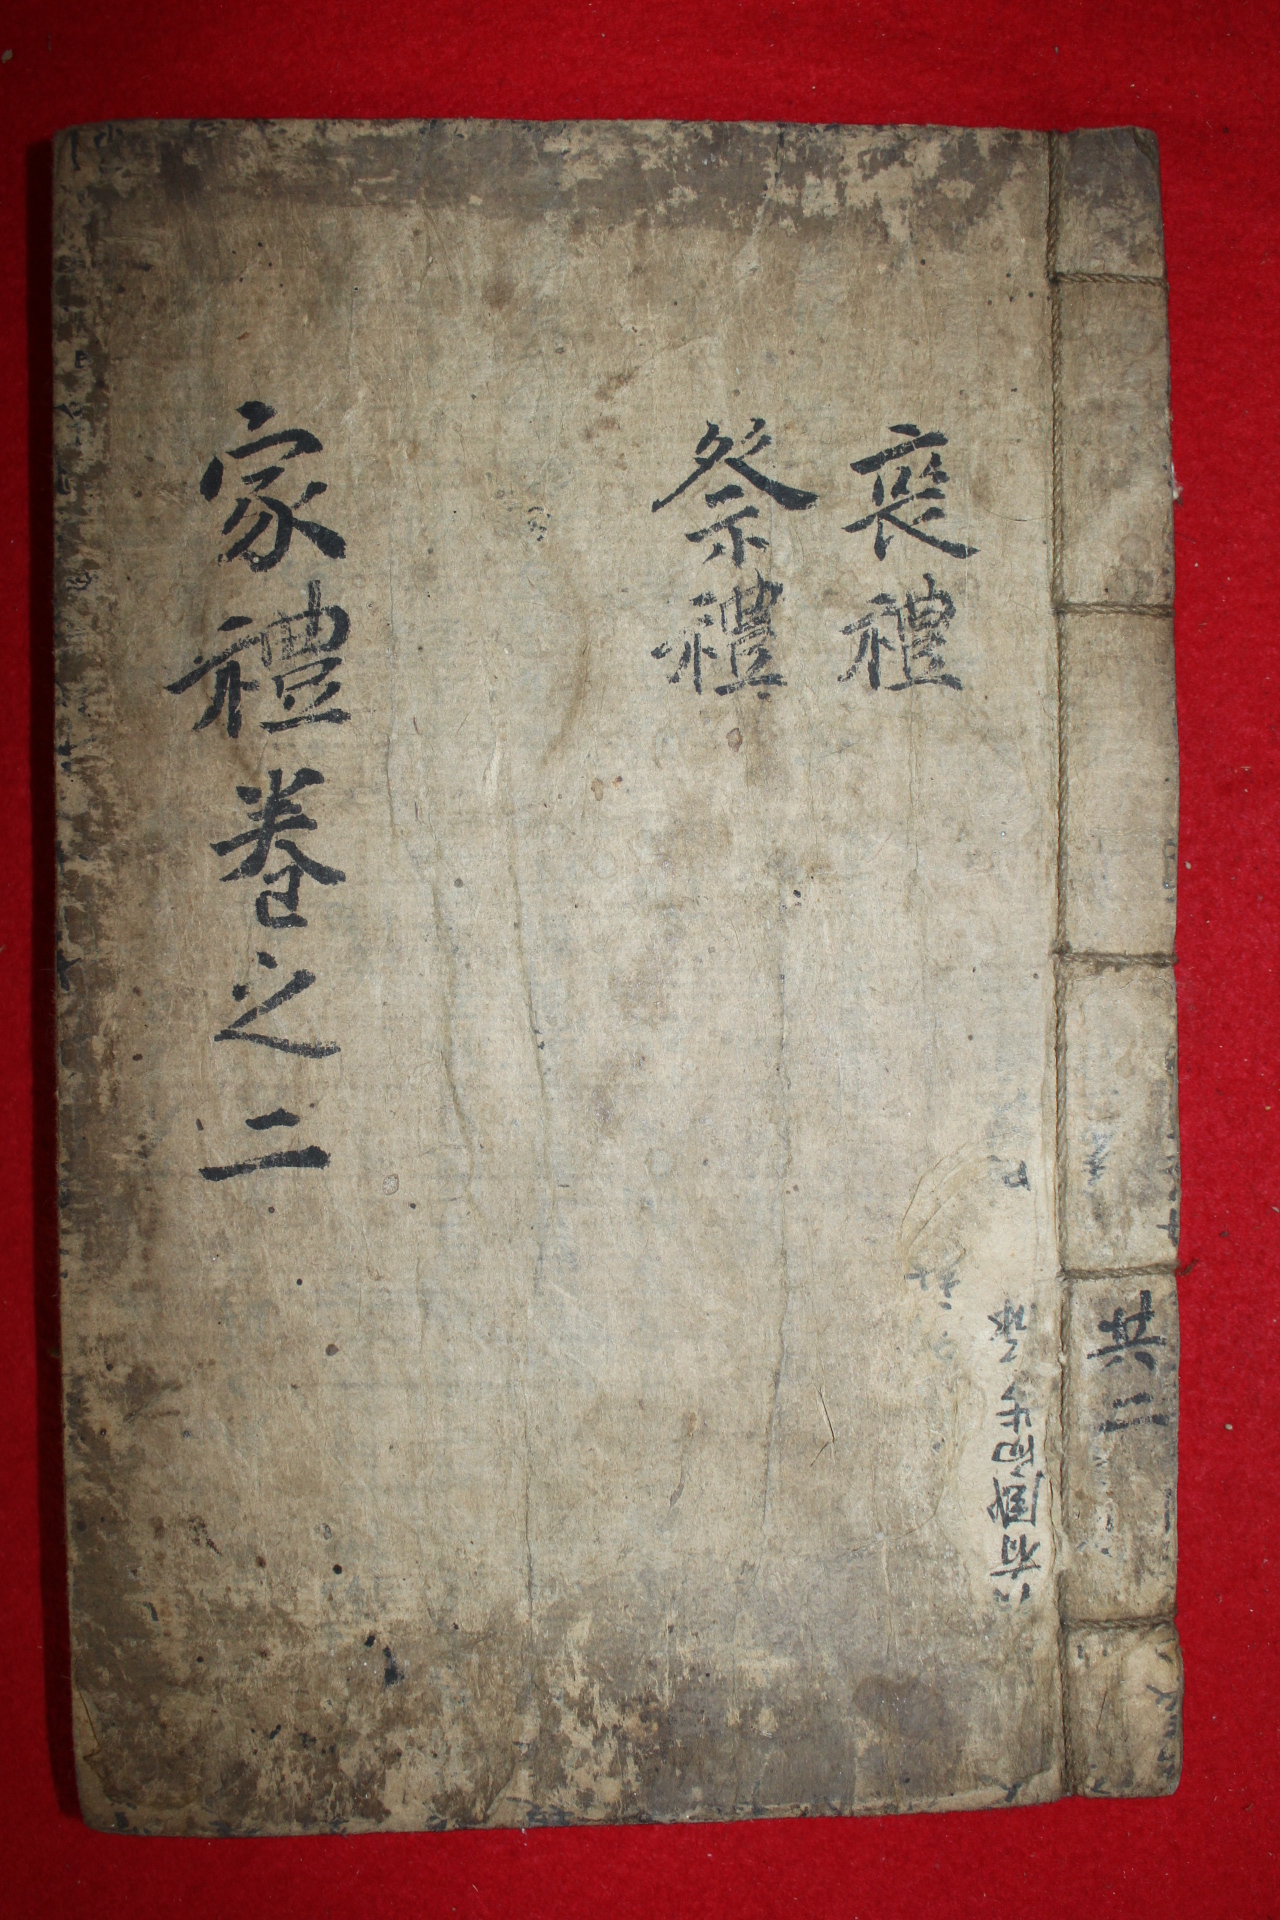 共二
喪禮
祭禮
家禮卷之二